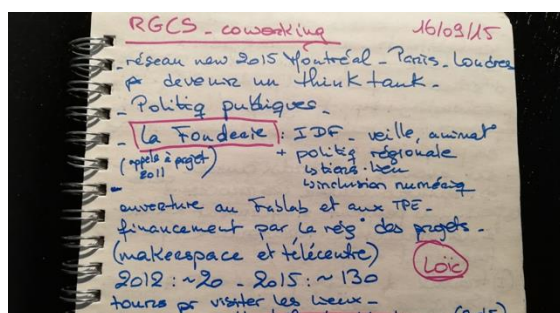 RGCS_coworking 16/09/15
_réseau new 2015 Montréal_Paris_Londres
pr devenir un think tank_
_Politiq publiques_
_La Fonderie : IDF_ veille, animat°
(appels à projet + politiq régionale
2011) ↳tiers-lieu
↳inclusion numériq
ouverture au Fablab et aux TPE_
financement par la rég° des projets_
(makerspace et télécentre) Loïc
2012 : ~20 _ 2015 : ~ 130
tours pr visiter les lieux_